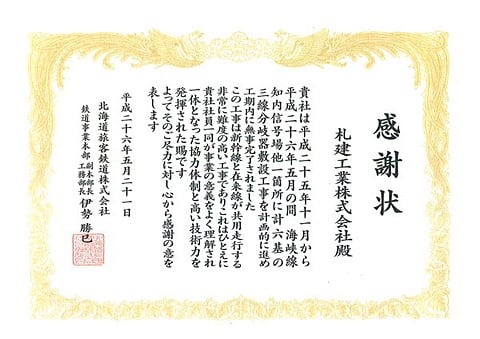 感謝状
札建工業株式会社殿
貴社は平成二十五年十一月から
平成二十六年五月の間 海峡線
知内信号場他一箇所に計六基の
三線分岐器敷設工事を計画的に進め
工期内に無事完了されました
この工事は新幹線と在来線が共用走行する
非常に難度の高い工事でありこれはひとえに
貴社社員一同が事業の意義をよく理解され
一体となった協力体制と高い技術力を
発揮された賜です
よってそのご尽力に対し心から感謝の意を
表します
平成二十六年五月二十一日
北海道旅客鉄道株式会社
鉄道事業本部 副本部長 工務部長 伊勢勝巳